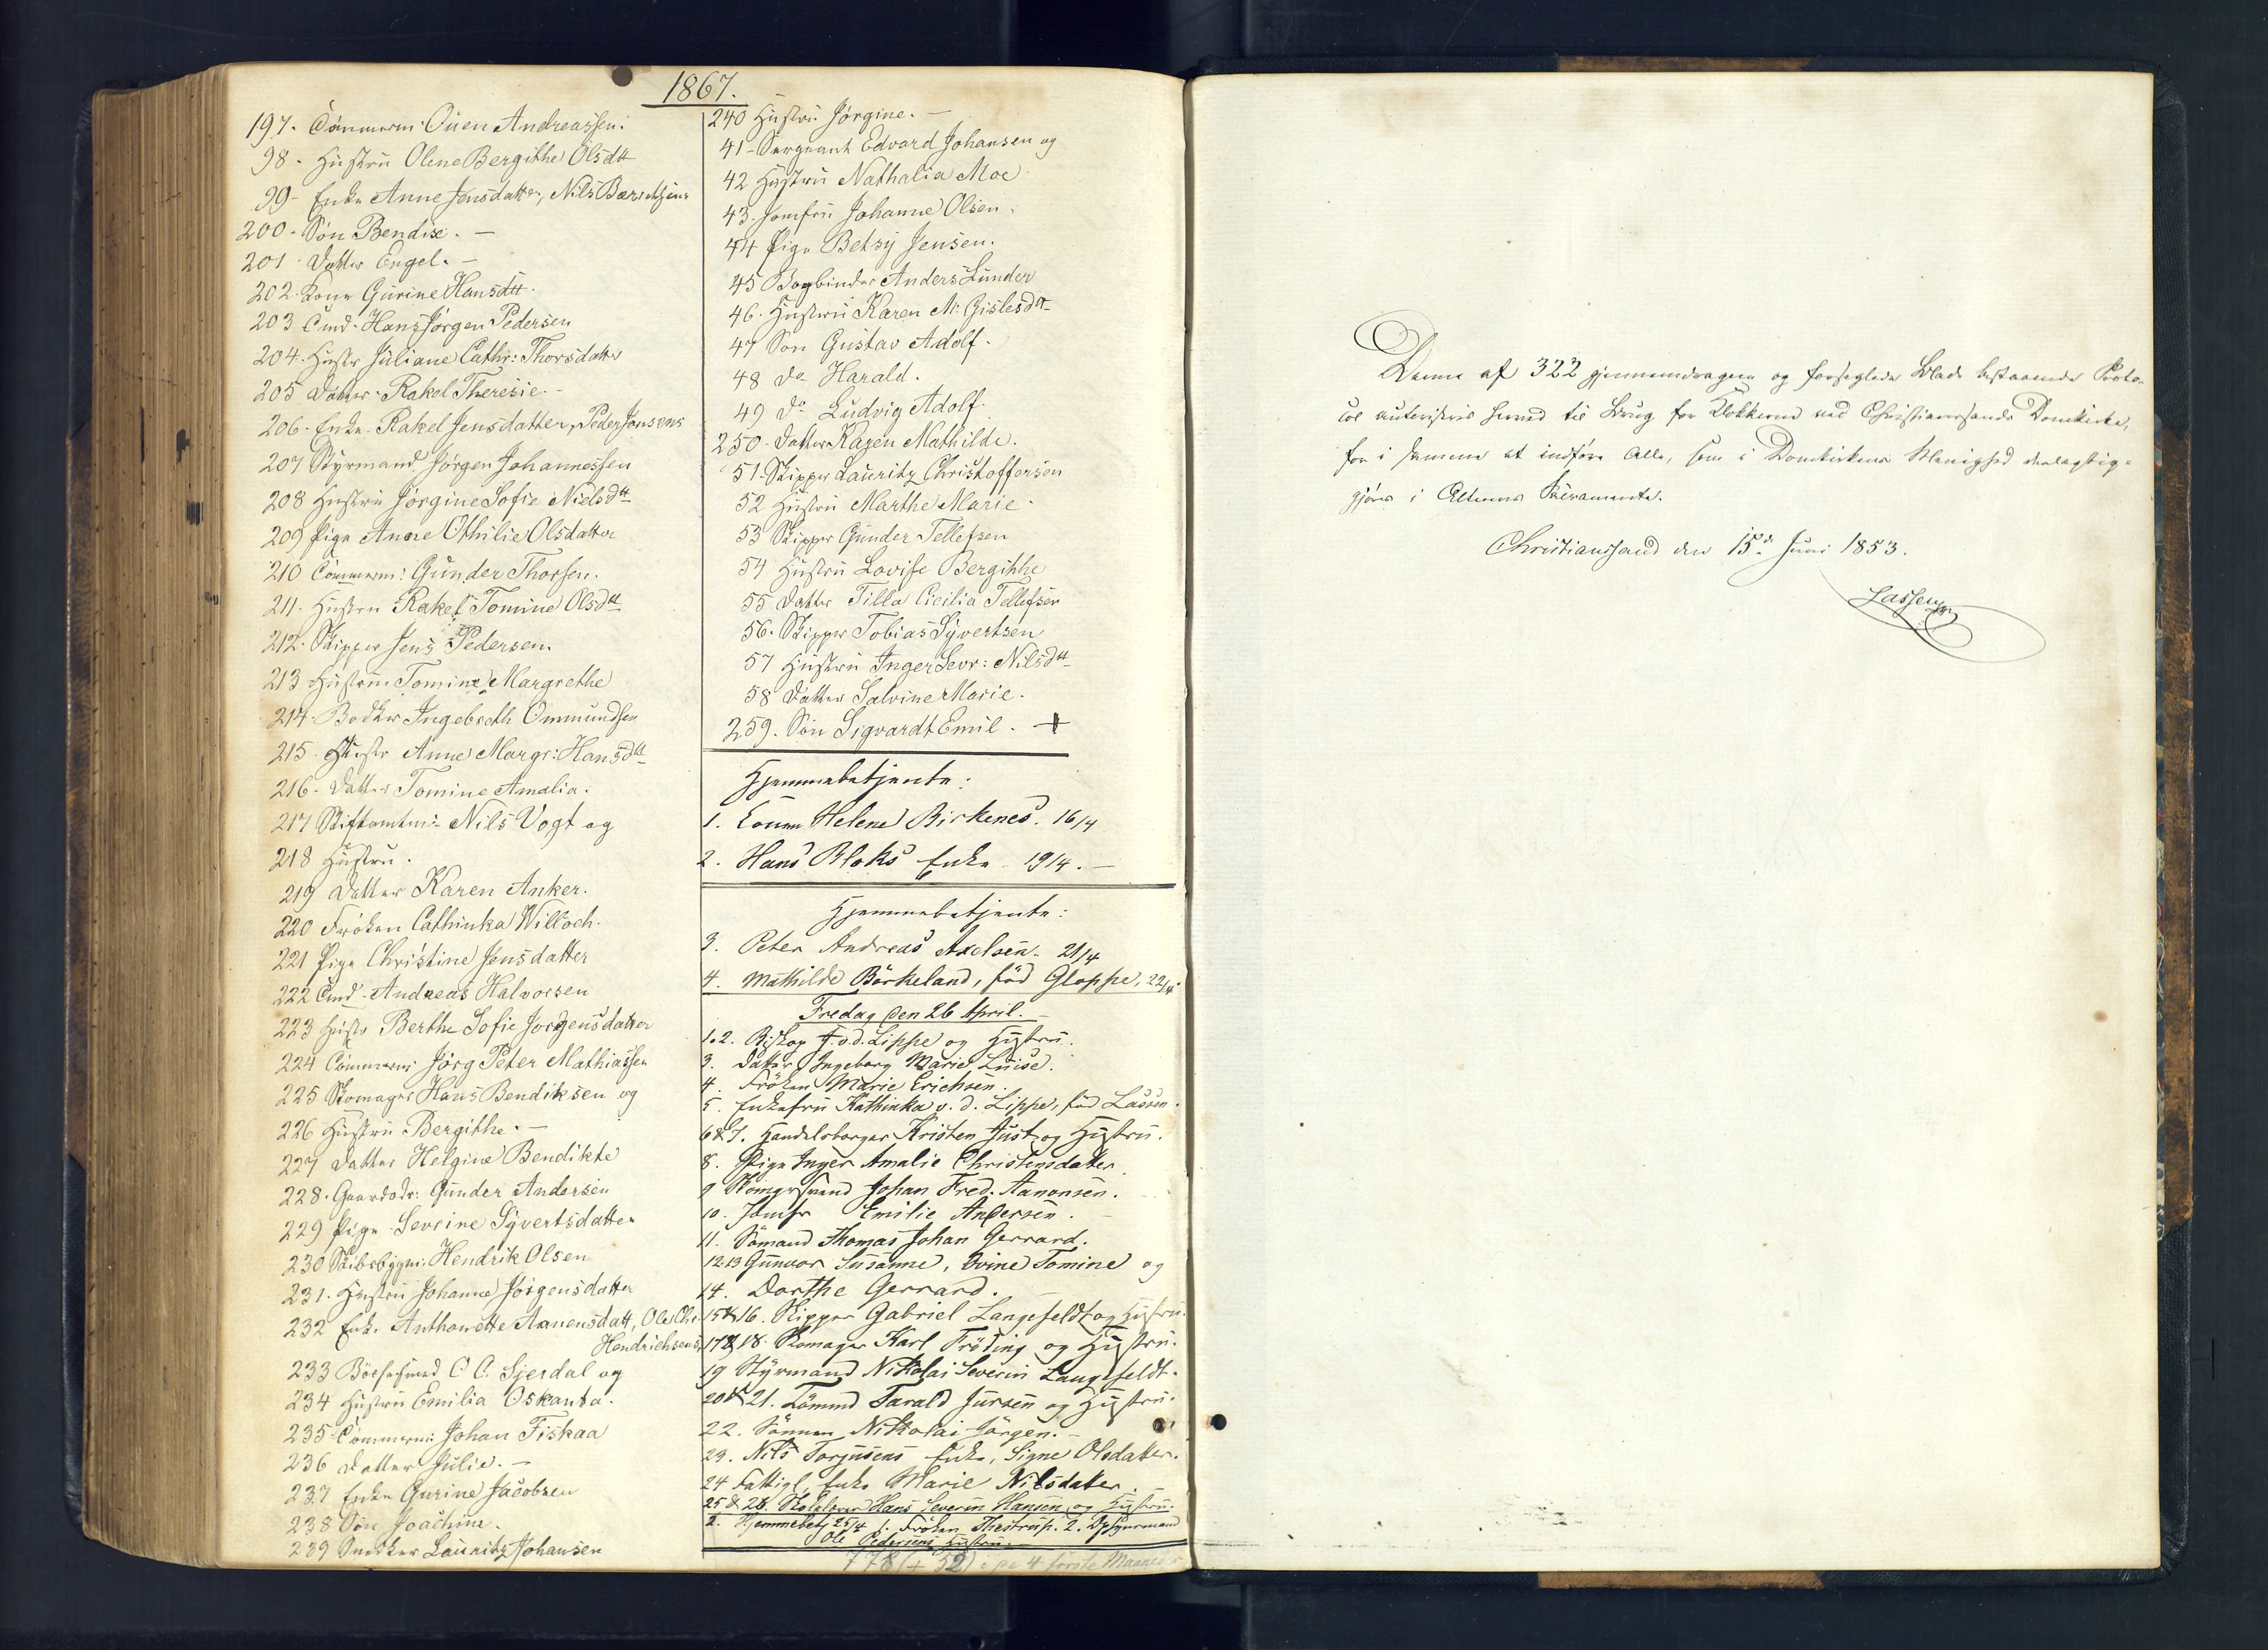 1867.
197. Tömmerm: Ouen Andreassen.
98 - Hustru Olene Bergithe Olsdtt
99 - Enke Anne Jensdatter, Nils
200 - Søn Bendix. -
201 - Datter Engel. -
202. Kone Gurine Hansdtt.
203 Hans Jørgen Pedersen
204. Hustr Juliane Cathr: Thorsdatter
205 Datter Rakel Theresie. -
206. Enke. Rakel Jensdatter, Peder Jonsens
207 Styrmand Jørgen Johannessen
208 Hustru Jørgine Sofie Nielsdtt
209 Pige Anne Othilie Olsdatter
210 Tömmerm: Gunder Thorsen.
211. Hustru Rakel Tomine Olsdtt
212. Skipper Jens Pedersen.
213 Hustru Tomine Margrethe
214. Bødker Ingebreth Ommundsen
215. Hustr Anne Margr: Hansdtt
216. Datter Tomine Amalia.
217 Stiftamtm: Nils Vogt og
218 Hustru.
219 Datter Karen Anker.
220 Frøken Cathinka Willoch.
221 Pige Christine Jensdatter
222 Andreas Halvorsen
223 Hustr Berthe Sofie Jørgensdatter
224 Tömmerm: Jørg Peter Mathiassen
225 Skomager Hans Bendiksen og
226 Hustru Bergithe. -
227 Datter Helgine Bendikte
228. Gaardbr: Gunder Andersen
229 Pige Sevrine Syvertsdatter
230 Skibsbygm: Hendrik Olsen
231. Hustru Johanne Jørgensdatter
232 Enke Anthonette Aanensdatt, Ole Chr.
Hendrichsens
233 Bøssesmed C. C. Sjerdal og
234 Hustru Emilia Oskanta.
235 Tömmerm: Johan Fiskaa
236 Datter Julie. -
237 Enke Gurine Jacobsen
238 Søn Joachim.
239 Snedker Lauritz Johansen
240 Hustru Jørgine. -
41 - Sergeant Edvard Johansen og
42 Hustru Nathalia Moe
43. Jomfru Johanne Olsen.
44 Pige Betsy Jensen.
45 Bogbinder Anders Lunder
46. Hustru Karen M. Gislesdtt
47 Søn Gustav Adolf.
48 do Harald.
49 do Ludvig Adolf.
250 - Datter Karen Mathilde.
51 - Skipper Lauritz Christoffersen
52 Hustru Marthe Marie.
53 Skipper Gunder Tellefsen
54 Hustru Lovise Bergithe
55 Datter Tilla Cicilia Tellefsen
56. Skipper Tobias Syvertsen
57 Hustru Inger Sevr: Nilsdtt
58 Datter Salvine Marie.
259. Søn Sigvardt Emil. -
Hjemmebetjente:
1. Helene Birkenes. 16/4
2. Hans Bloks Enke. 19/4. -
Hjemmebetjente:
3. Peter Andreas Axelsen. 21/4
4. Mathilde Börkeland, föd Gloppe, 22/4.
Fredag den 26 April. -
1. 2. Biskop J. v. d. Lippe og Hustru.
3. Datter Ingeborg Marie Luise.
4. Fröken Marie Erichsen.
5. Enkefru Kathinka v. d. Lippe, föd Lassen.
6 & 7. Handelsborger Kristen Just og Hustru.
8. Pige Inger Amalie Christensdatter.
9 Skomgrsvend Johan Fred. Aanonsen.
10. Jomfr Emilie Andersen.
11. Sömand Thomas Johan Gerrard.
12. 13 Gunvor Susanne, Ovine Tomine og
14. Dorthe Gerrard.
15 & 16. Skipper Gabriel Langefeldt og Hustru.
17 & 18. Skomager Karl Fröding og Hustru.
19 Styrmand Nikolai Severin Langefeldt.
20 & 21. Tömmd Tarald Jursen og Hustru.
22. Sönnen Nikolai Jörgen. -
23. Nils Torjusens Enke, Signe Olsdatter.
24 Fattigl. Enke Marie Nilsdatter. -
25 & 26. Skolelærer Hans Severin Hansen og Hustru.
2. Hjemmebetj 25/4 1. Fröken Thestrup. 2.
Ole Pedersens Hustru. -
778 (+ 52) i de 4 förste Maaneder
Denne af 322 gjennemdragne og forseglede Blade bestaaende Proto-
col autoriseres herved til Brug for Klokkeren ved Christianssands Domkirke,
for i samme at indføre Alle, som i Domkirkens Menighed deelagtig-
gjøres i Alterens Sacramente.
Christianssand den 15de Juni 1853.
Lassen